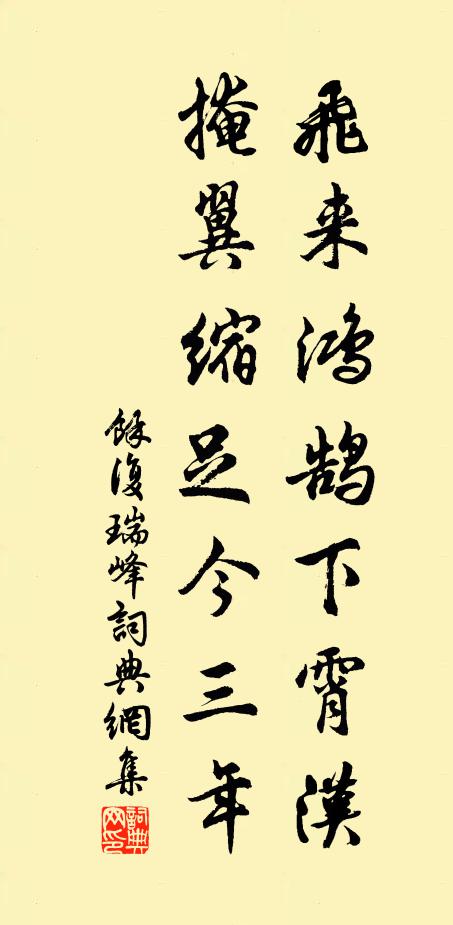 飛来鴻鵠下霄漢
掩翼縮足今三年
餘復瑞峰詞典網集
詞典网印